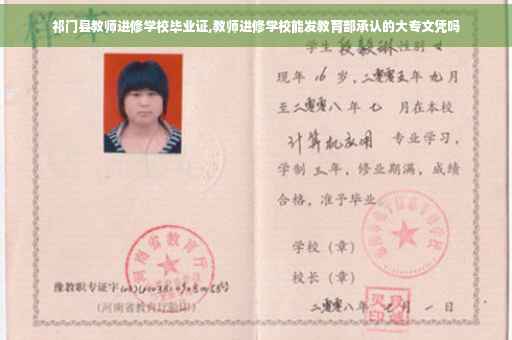 祁门县教师进修学校毕业证,教师进修学校能发教育部承认的大专文凭吗
学生 段毅琳 性别 女
现年 16 岁,二零零五年 九月
至二零零八年 七 月在本校
计算机应用 专业学习,
学制 三年,修业期满,成绩
合格,准予毕业
学校(章)
校长(章)
二零零八年 七 月 一 日
河南省教育厅
豫教职专证字
(河南省教育厅验印)